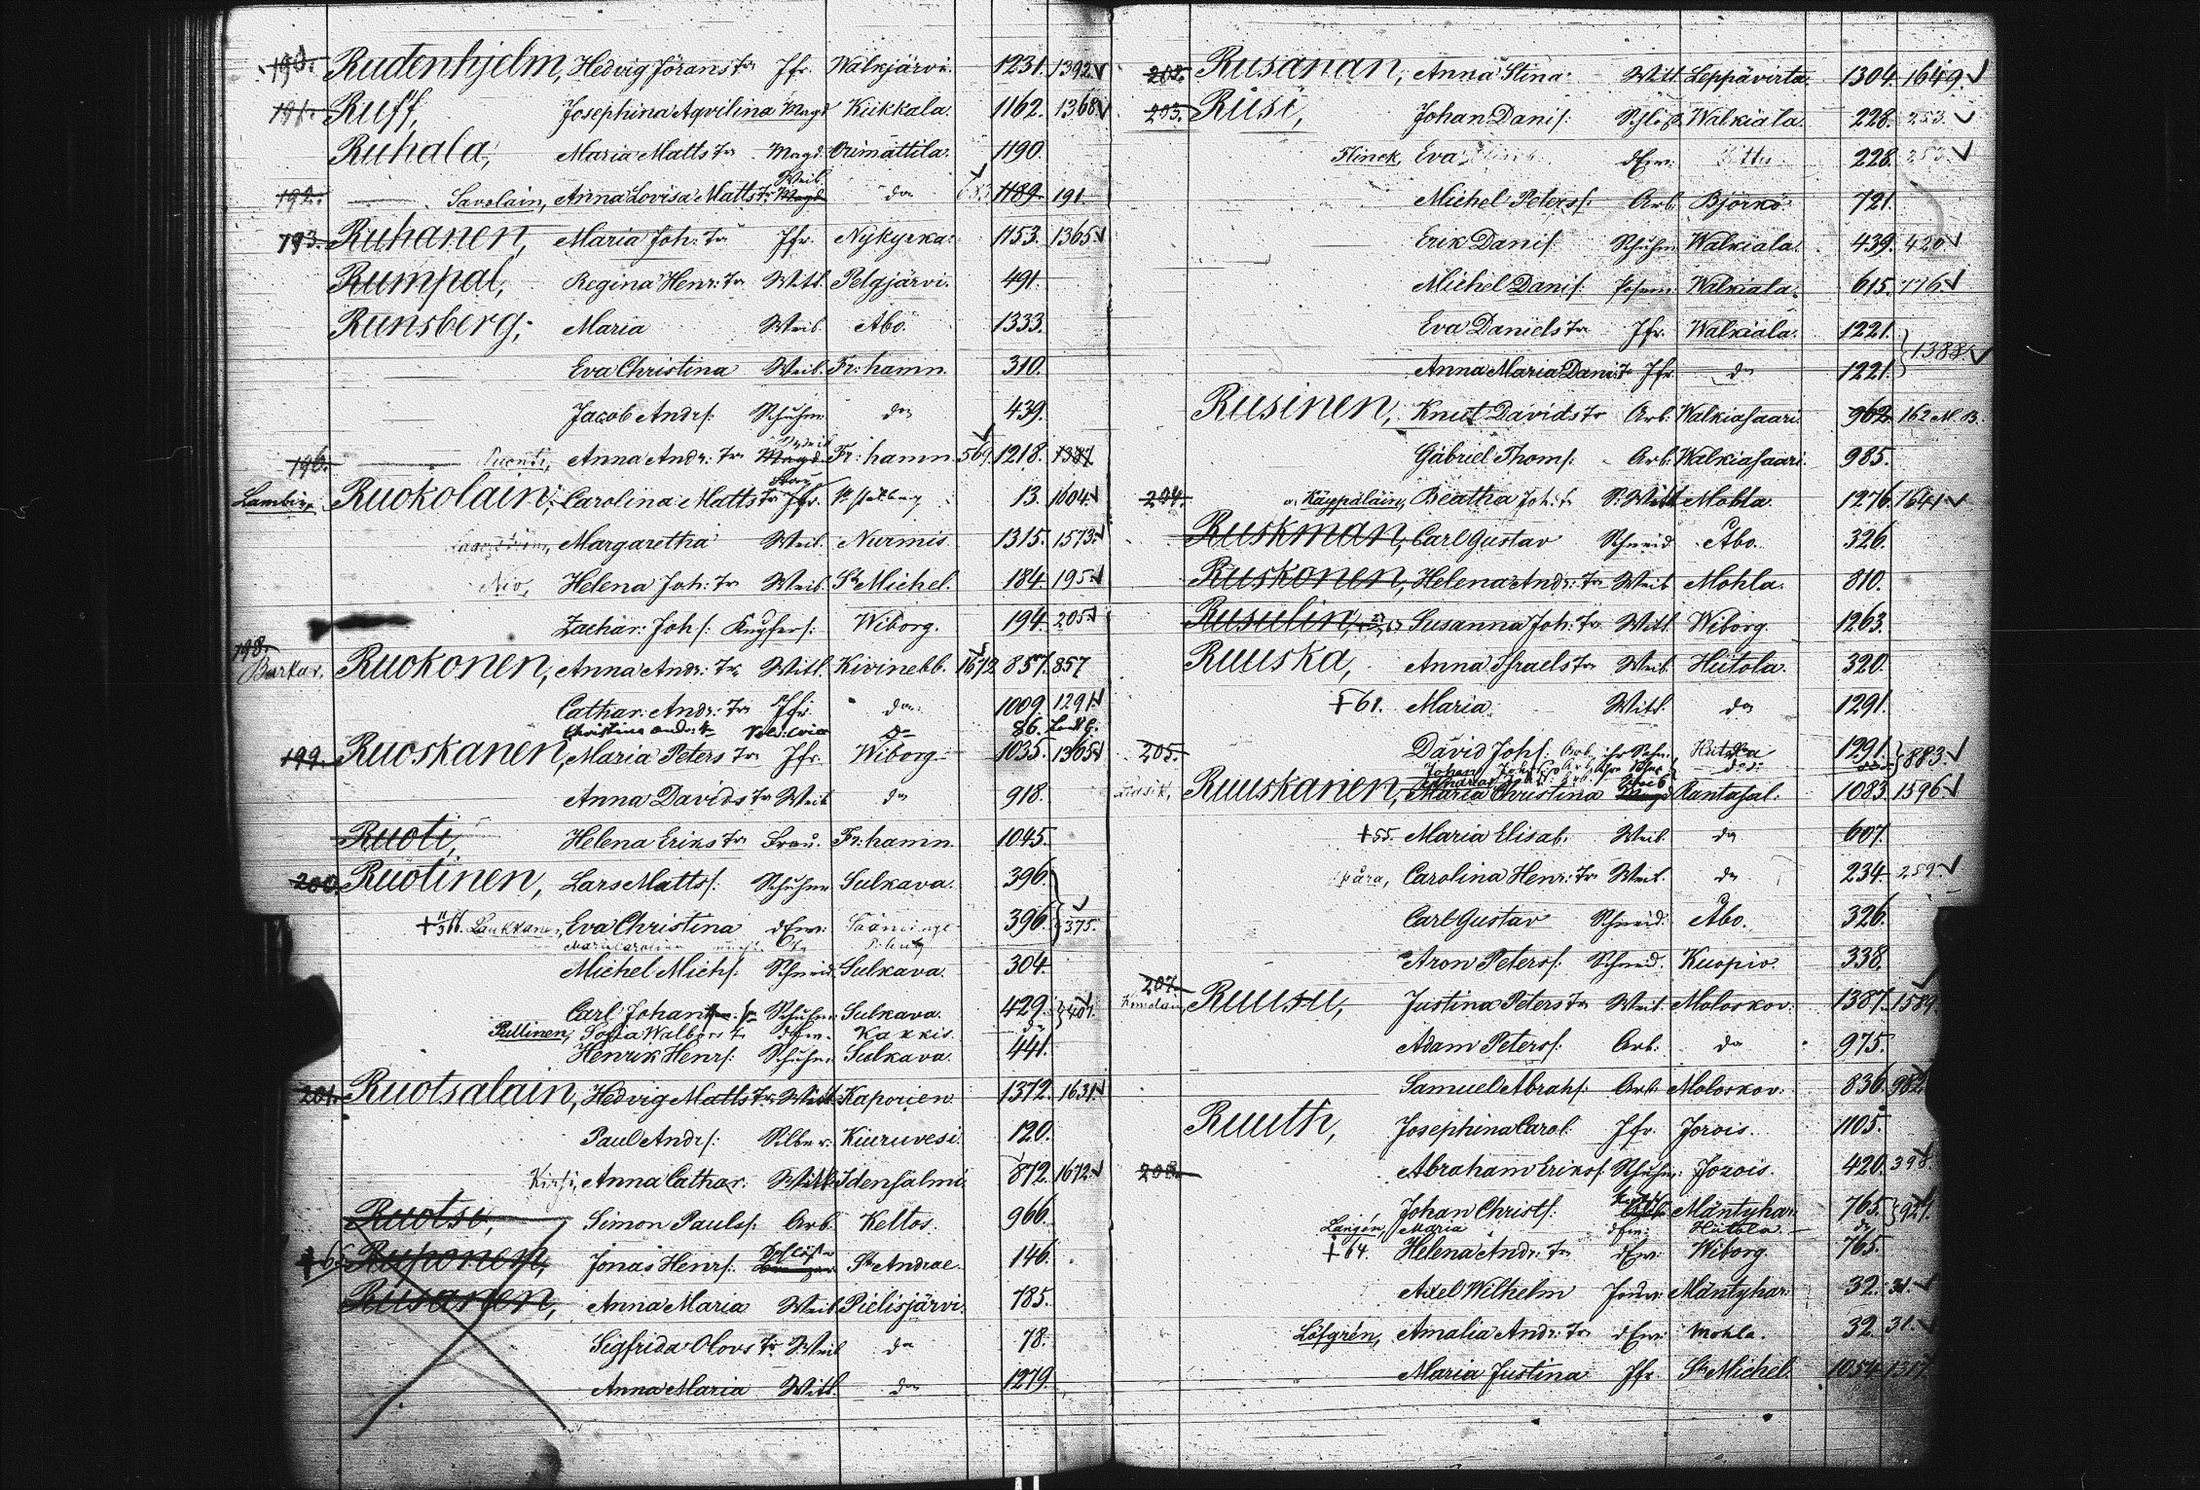 190. Rudenhjelm, Hedvig Jörans Tr Jfr. Walkjärvi. 1231. 1392.
191. Ruff, Josephina Aqvilina Magd Kiikkala. 1162. 1368
Ruhala, Maria Matts Tr Magd. Orimattila. 1190.
192. Savolain, Anna Lovisa Matts Tr Weib. Magd do 1189 191
193. Ruhanen, Maria Joh: Tr Jfr. Nykyrka. 1153. 1365
Rumpal, Regina Henr: Tr Witt. Pelgjärvi. 491.
Runsberg, Maria Weib Abo 1333.
Eva Christina Weib. Fr: hamn. 310.
Jacob Andrs: Schuhm do 439.
196. Anna Andr: Tr Magd Fr: hamn. 569 1218. 1387
Ruokolain, Carolina Matts Tr Jfr. 13. 1604
Margaretha Weib. Nurmis 1315. 1573.
Helena Joh: Tr Weib. St Michel. 184. 195
Zachar: Johs: Kupfers: Wiborg. 194. 205
198. Ruokonen, Anna Andr: Tr Witt. Kivinebb. 1672 857. 857
Cathar: Andr: Tr Jfr. do 1009. 1291
Christina Andr: Tr do 86.
199. Ruoskanen, Maria Peters Tr Jfr. Wiborg 1035. 1305
Anna Davids Tr Weib do 918.
Ruoti, Helena Eriks Tr Frau. Fr: hamn. 1045.
200. Ruotinen, Lars Matts: Schuhm Sulkava. 396.
Laukkanen, Eva Christina dEw: 396. 375.
Michel Michs: Schneid. Sulkava. 304.
Carl Johan Schuhm Sulkava. 429. 407.
Pullinen, Sofia Walborg dEw. Kaxkis. do
Henrik Henrs: Schuhm Sulkava. 441.
201. Ruotsalain, Hedvig Matts Tr Witt Kaporien 1372. 1631
Paul Andrs: Silber: Kiuruvesi 120.
Kirsi, Anna Cathar. Witt Idensalmi. 872. 1672
Ruotsi, Simon Pauls: Arb. Keltos. 966.
Ruponen, Jonas Henrs: St Andrae. 146.
Rusanen, Anna Maria Weib Pielisjärvi. 785.
Sigfrida Olovs Tr Weib do 78.
Anna Maria Witt. do 1279.
202. Rusanan, Anna Stina Witt. Leppävirta. 1304. 1649.
203. Rusi, Johan Danis: Walkiala. 228. 253.
Flinck, Eva dEw: 228. 253.
Michel Peters: Arb Björkö. 721.
Erik Danis: Schuhm Walkiala. 439. 420
Michel Danis: Walkiala. 615. 776
Eva Daniels Tr Jfr. Walkiala. 1221.
Anna Maria Danis Tr Jfr. do 1221. 1388.
Rusinen, Knut Davids Tr Arb. Walkiasaari. 962. 162 M. B.
Gabriel Thoms: Arb: Walkiasaari. 985.
204. Käyppäläin, Beatha Joh: Tr S: Witt Mohla. 1276. 1641
Ruskman, Carl Gustav Schneid Abo. 326.
Ruskonen, Helena Andr: Tr Weib Mohla. 810.
Rusulin, Susanna Joh: Tr Witt. Wiborg. 1263.
Ruuska, Anna Israels Tr Weib. Hiitola. 320.
+61. Maria Witt. do 1291.
205. David Johs: Arb. ihr Sohn. Hiitola 1291. 883.
Ruuskanen, Maria Christina Weib Rantasal: 1083. 1596
+55. Maria Elisab. Weib. do 607.
Carolina Henr: Tr Weib. do 234. 259.
Carl Gustav Schneid: Åbo. 326.
Aron Peters: Schneid. Kuopio. 338.
207. Ruusu, Justina Peters Tr Weib. Moloskov: 1387. 1589
Adam Peters: Arb: do 975.
Samuel Abrahs: Arb Moloskov: 836. 982
Ruuth, Josephina Carol Jfr. Jorois. 1105.
208. Abraham Eriks: Schuhm: Jorois. 420. 398.
Johan Christs: Mäntyhar: 765. 927.
Langén, Maria dEw: Hiitola. do
+64. Helena Andr: Tr dEw: Wiborg. 765.
Axel Wilhelm Mäntyhar: 32. 31.
Löfgrén, Amalia Andr: Tr dEw: Mohla. 32. 31.
Maria Justina Jfr. St Michel. 1054 1317